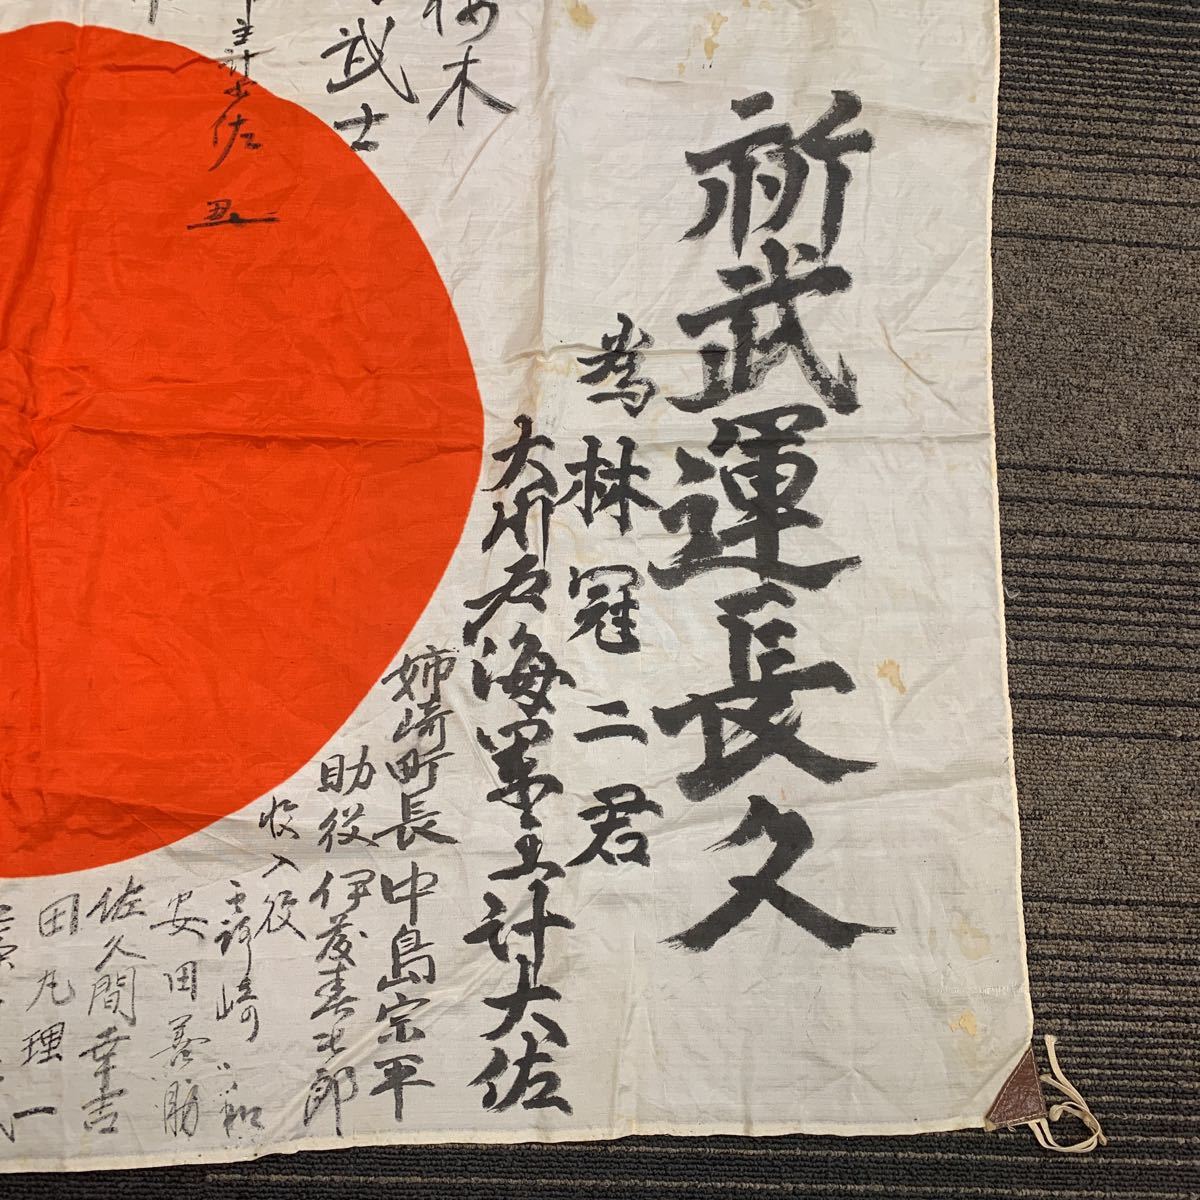 祈武運長久
為林冠二君
大州戸海軍主計大佐
姉崎町長 中島宗平
助役 伊藤喜七郎
収入役 崎
安田善助
佐久間幸吉
田丸理一
木
武士
主計少佐